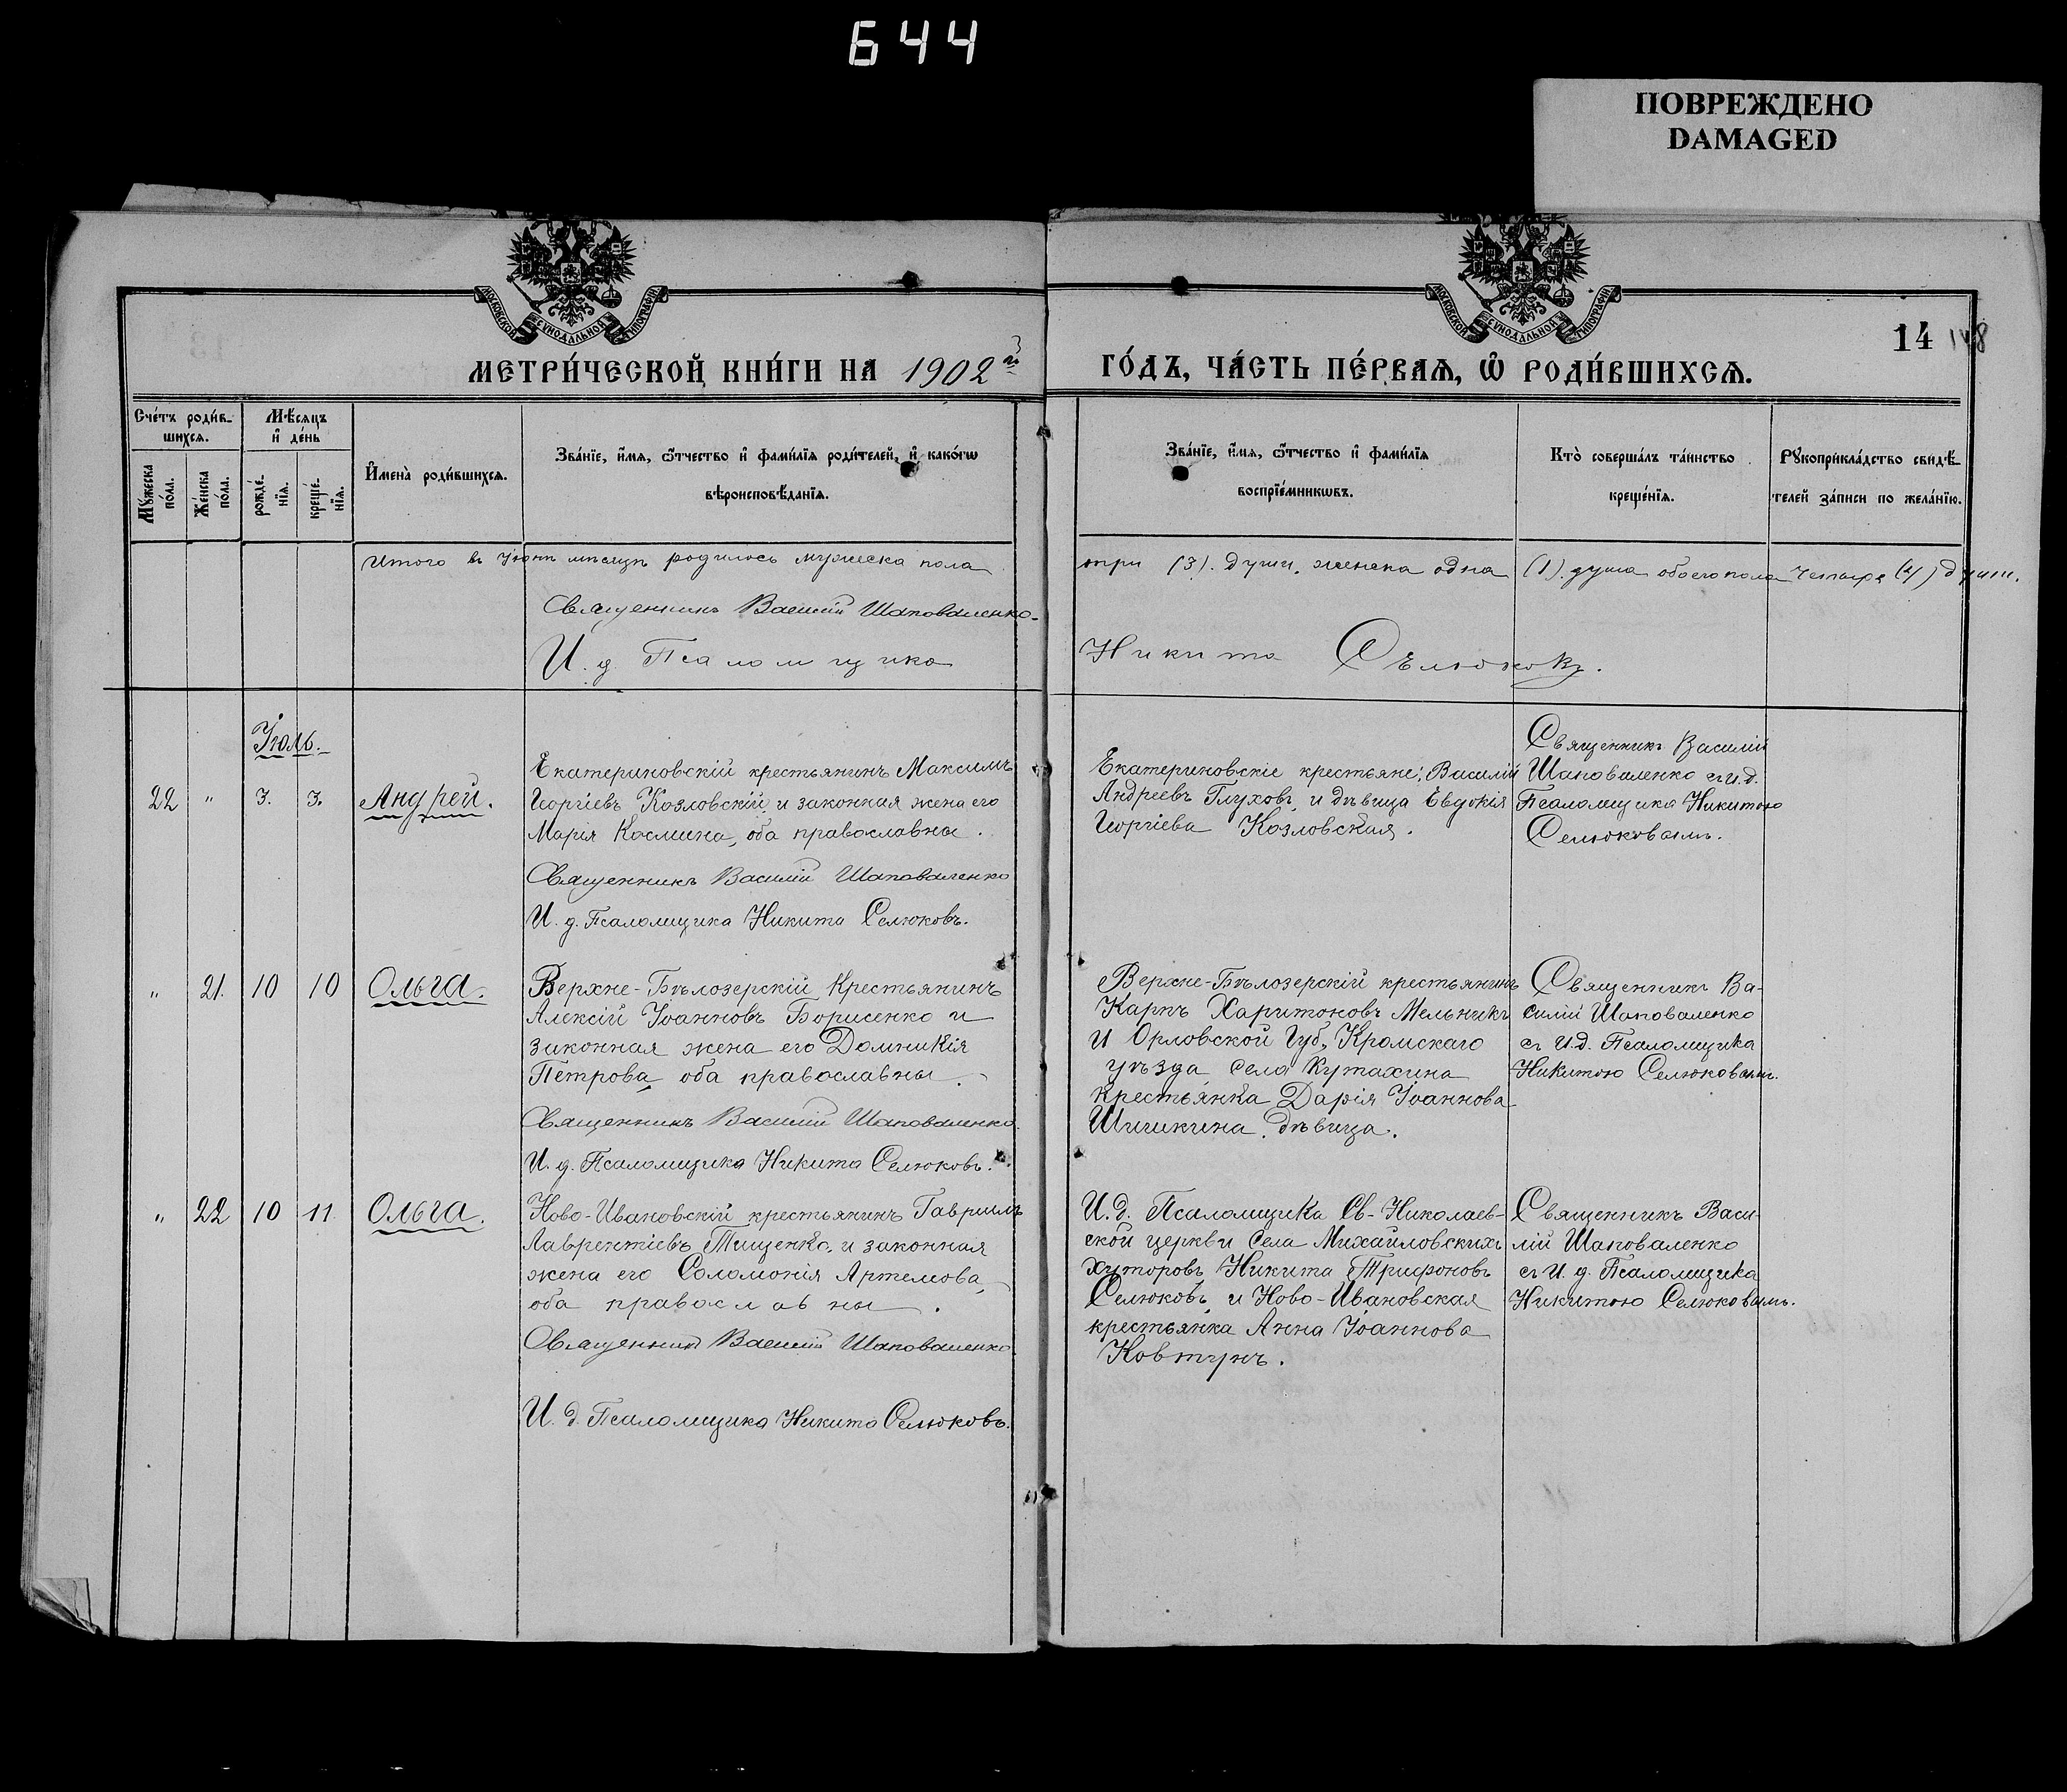 644
ПОВРЕЖДЕНО
DAMAGED
МОСКОВСКОЙ СѴНОДАЛЬНОЙ ТИПОГРАФІИ
МОСКОВСКОЙ СѴНОДАЛЬНОЙ ТИПОГРАФІИ
14 148
МЕТРИ́ЧЕСКОЙ КНИ́ГИ НА 1902й
ГО́ДЪ, ЧА́СТЬ ПЕ́РВАѦ, Ѡ РОДИ́ВШИХСѦ.
Сче́тъ роди́в-
шихсѧ.
Мѣ́сѧцъ
и де́нь
Мꙋ́жеска
по́ла.
Же́нска
по́ла.
рожде́-
нїѧ.
креще́-
нїѧ.
И҆мена̀ роди́вшихсѧ.
Зва́нїе, и҆́мѧ, ѻ҆́тчество и҆ фами́лїѧ роди́телей, и҆ како́гѡ
вѣроисповѣ́данїѧ.
Зва́нїе, и҆́мѧ, ѻ҆́тчество и҆ фами́лїѧ
воспрїе́мникѡвъ.
Кто̀ соверша́лъ та́инство
креще́нїѧ.
Рꙋкоприкла́дство свидѣ́-
телей за́писи по жела́нїю.
Итого въ Іюнѣ мѣсяцѣ родилось мужеска пола
три (3). души, женска одна (1). душа обоего пола четыре (4) души.
Священникъ Василій Шаповаленко.
И. д. Псаломщика
Никита Сѣлюковъ.
Іюль.
22 " 3. 3. Андрей.
Екатериновскій крестьянинъ Максимъ
Георгіевъ Козловскій, и законная жена его
Марія Космина, оба православны.
Священникъ Василій Шаповаленко
И. д. Псаломщика Никита Селюковъ.
Екатериновскіе крестьяне: Василій
Андреевъ Глуховъ, и дѣвица Евдокія
Георгіева Козловская.
Священникъ Василій
Шаповаленко съ И.д.
Псаломщика Никитою
Селюковымъ.
" 21. 10 10 Ольга.
Верхне-Бѣлозерскій Крестьянинъ
Алексій Іоанновъ Борисенко и
законная жена его Домникія
Петрова оба православны.
Священникъ Василій Шаповаленко.
И. д. Псаломщика Никита Селюковъ.
Верхне-Бѣлозерскій крестьянинъ
Карпъ Харитоновъ Мельникъ
и Орловской Губ, Кромскаго
уѣзда села Кутахина
крестьянка Дарія Іоаннова
Шишкина, дѣвица.
Священникъ Ва-
силій Шаповаленко
съ И.д. Псаломщика
Никитою Селюковымъ.
" 22 10 11 Ольга.
Ново-Ивановскій крестьянинъ Гавріилъ
Лаврентіевъ Тищенко, и законная
жена его Соломонія Артемова,
оба православны.
Священникъ Василій Шаповаленко.
И. д. Псаломщика Никита Селюковъ.
И. д. Псаломщика Св-Николаев-
ской церкви Села Михайловскихъ
хуторовъ Никита Трифоновъ
Селюковъ, и Ново-Ивановская
крестьянка Анна Іоаннова
Ковтунъ.
Священникъ Васи-
лій Шаповаленко
съ И. д. Псаломщика
Никитою Селюковымъ.